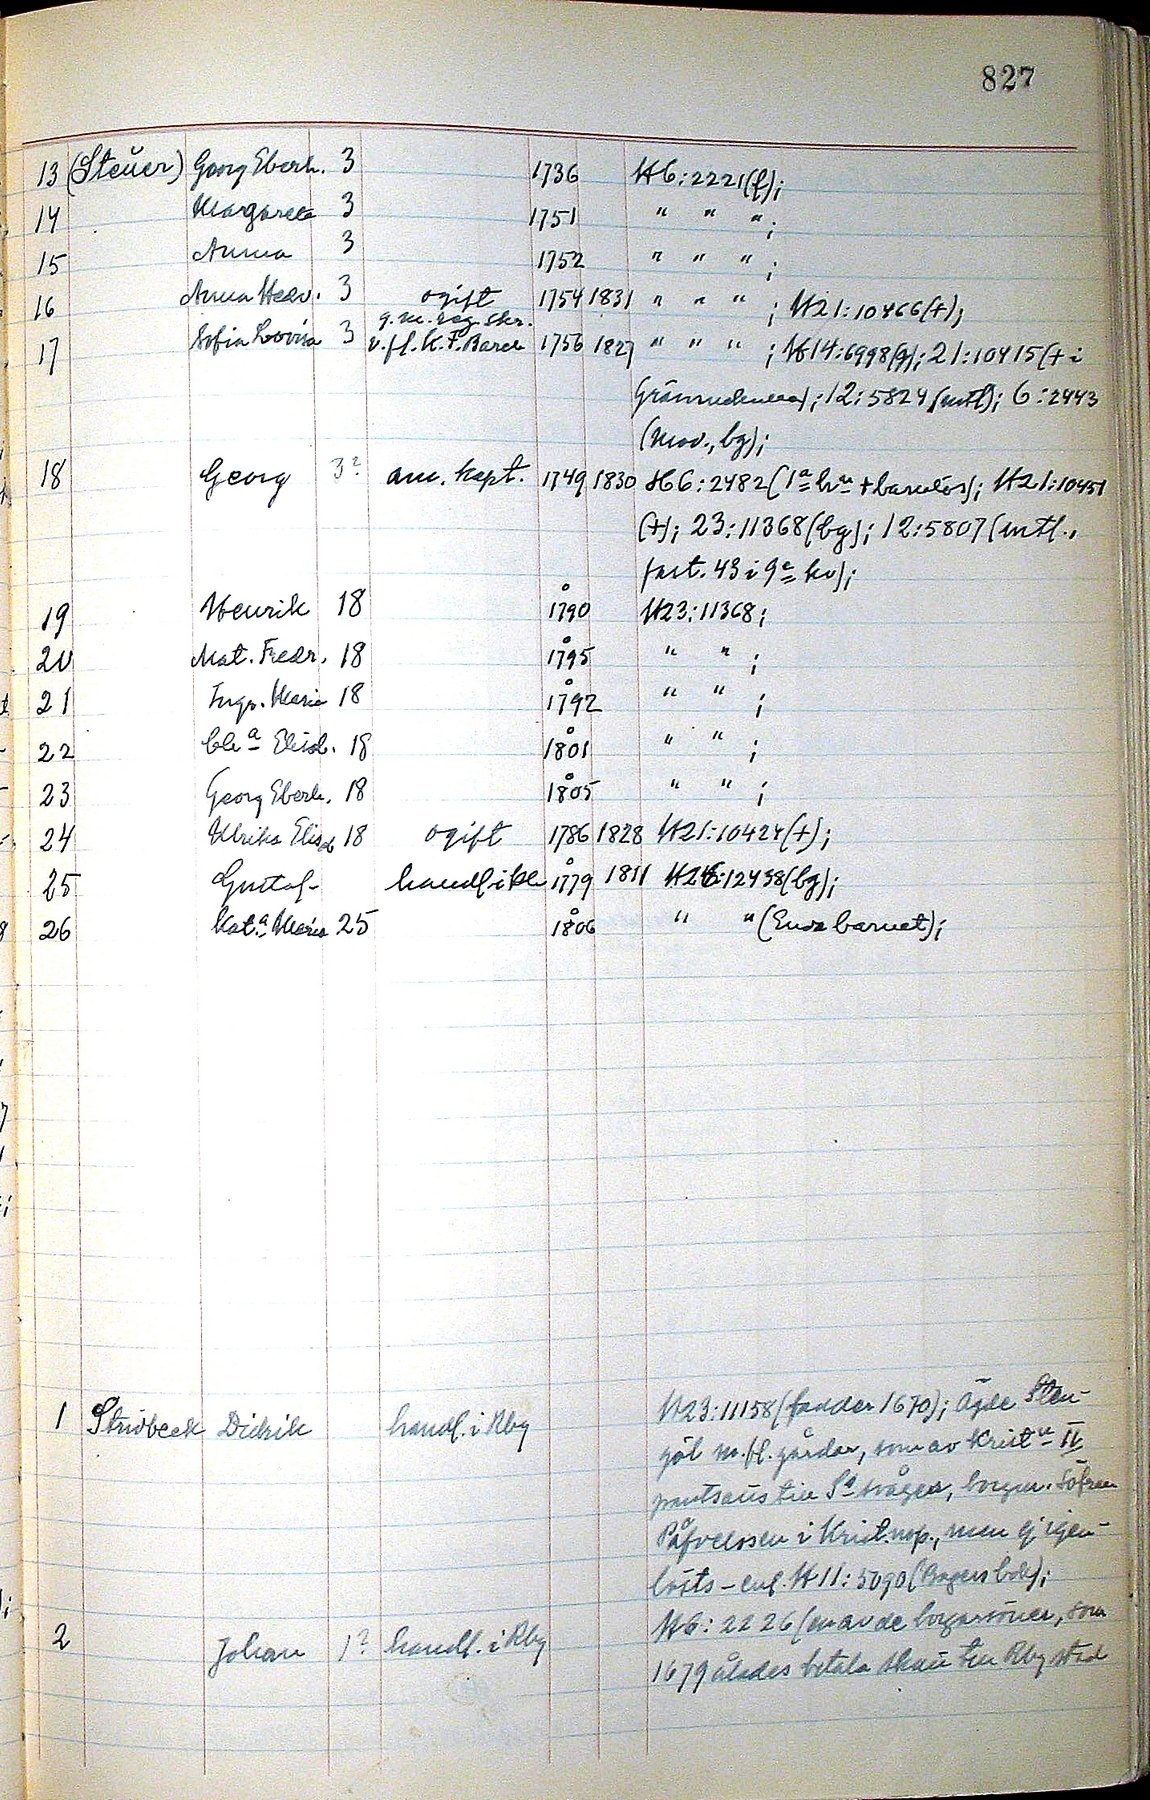 827
13 (Steüer) Georg Eberh. 3 1736 H6:2221(f);
14 Margareta 3 1751 " " ";
15 Anna 3 1752 " " ";
16 Anna Hedv. 3 ogift 1754 1831 " " "; H21:10466(+);
g. m. reg. skr.
17 Sofia Lovisa 3 v. f.d. K. F. 1756 1827 " " "; H14:6998(g); 21:10415(+ i
12:5824(mtl); 6:2443
(mov., bg);
18 Georg 3? am. kapt. 1749 1830 H6:2482(1a hu + barnlös); H21:10451
(+); 23:11368(bg); 12:5807(mtl.,
fast. 43 i 9e kv);
19 Henrik 18 1790 H23:11368;
20 Mat. Fredr. 18 1795 " ";
21 Inga. Maria 18 1792 " ";
22 Cha Elisab. 18 1801 " ";
23 Georg Eberh. 18 1805 " ";
24 Ulrika Elisab 18 ogift 1786 1828 H21:10424(+);
25 Gustaf 1779 1811 H26:12438(bg);
26 Kat.a Maria 25 1806 " " (Enda barnet);
1 Stridbeck Didrik handl. i Rby H23:11158(fadder 1670); Ägde Sten-
göl m. fl. gårdar, som av Krist.n II
till Sa svåger, borgm. Söfren
Påfvelssen i Krist.nop., men ej igen-
lösts - enl. H11:5090
2 Johan 1? handl. i Rby H6:2226(en av de borgarsöner, som
1679 ålades betala skatt till Rby stad